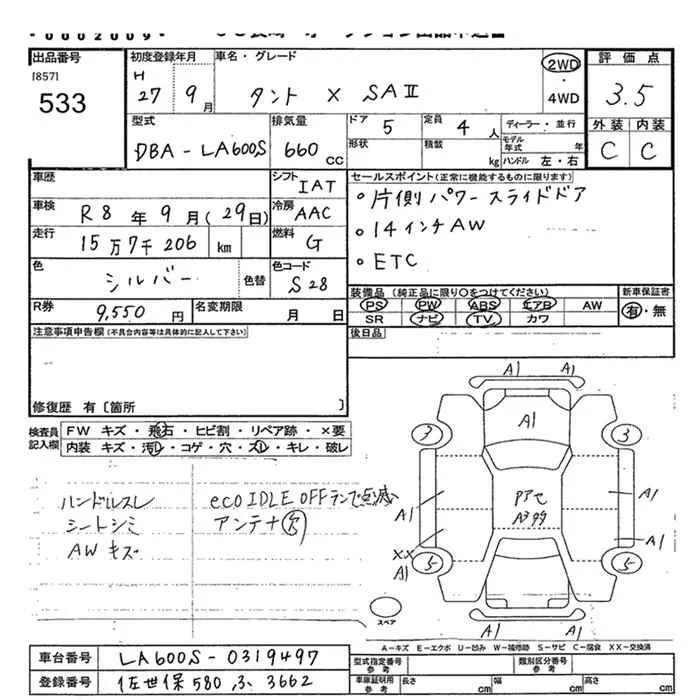 0002009
出品番号
[857]
533
初度登録年月
H
27 9月
車名・グレード
タント X SAⅡ
2WD
・
4WD
評価点
3.5
外装 内装
C C
型式
DBA-LA600S
排気量
660 CC
ドア 5
形状
定員 4人
積載 kg
ディーラー・並行
モデル年式 年
ハンドル 左・右
車歴
シフト IAT
車検 R8年9月(29日)
冷房 AAC
走行 15万7千206 km
燃料 G
色 シルバー 色替
色コード S28
R券 9,550円
名変期限 月 日
セールスポイント(正常に機能するものに限ります)
・片側パワースライドドア
・14インチAW
・ETC
装備品(純正品に限り○をつけてください)
PS PW ABS エアB AW
SR ナビ TV カワ
新車保証書
有・無
後日品
注意事項申告欄(不具合内容等は具体的に記入して下さい)
修復歴 有[箇所 ]
検査員記入欄
FW キズ・飛石・ヒビ割・リペア跡・×要
内装 キズ・汚レ・コゲ・穴・スレ・キレ・破レ
ハンドルスレ
シートシミ
AWキズ
eco IDLE OFFランプ点滅
アンテナ欠
A1 A1
A1
3 3
A1 A1
XX
A1
A1
5 5
A1 A1
スペア
A-キズ E-エクボ U-凹み W-補修跡 S-サビ C-腐食 XX-交換済
車台番号 LA600S-0319497
登録番号 佐世保 580 る 3662
型式指定番号
参考
類別区分番号
参考
車庫証明用
参考
長さ cm 幅 cm 高さ cm